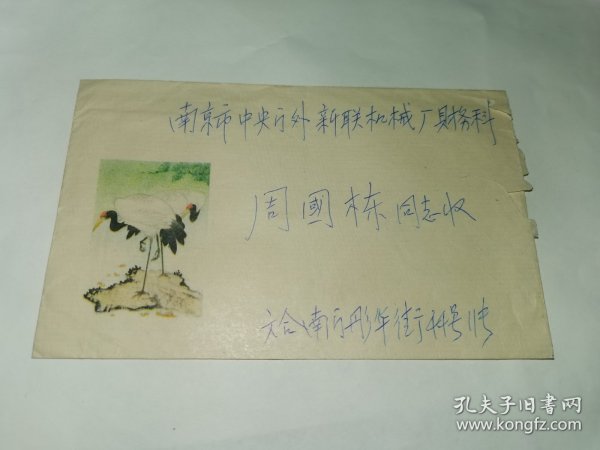 南京市中央门外新联机械厂財務科
周國栋同志收
六合南门彤华街44号
孔夫子旧書网
www.kongfz.com